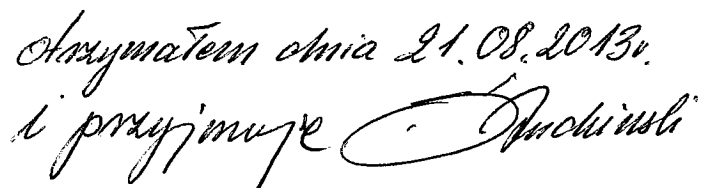 Otrzymałem dnia 21.08.2013r.
i przyjmuję